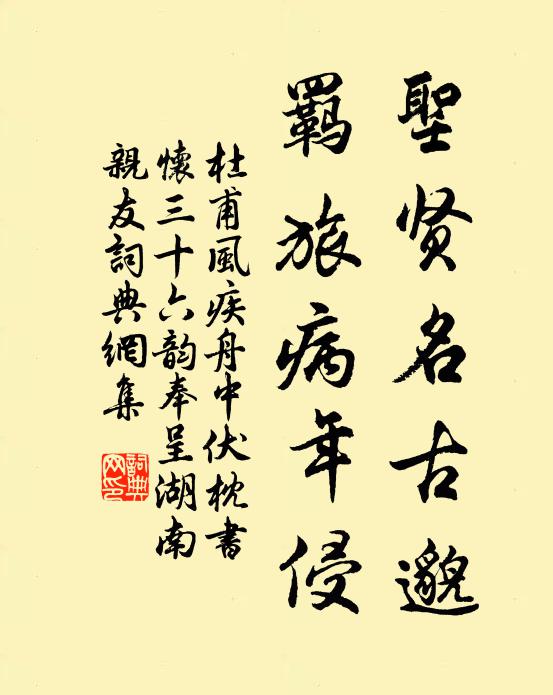 聖贤名古邈
羇旅病年侵
杜甫風疾舟中伏枕書
懷三十六韵奉呈湖南
親友詞典網集
詞典网印